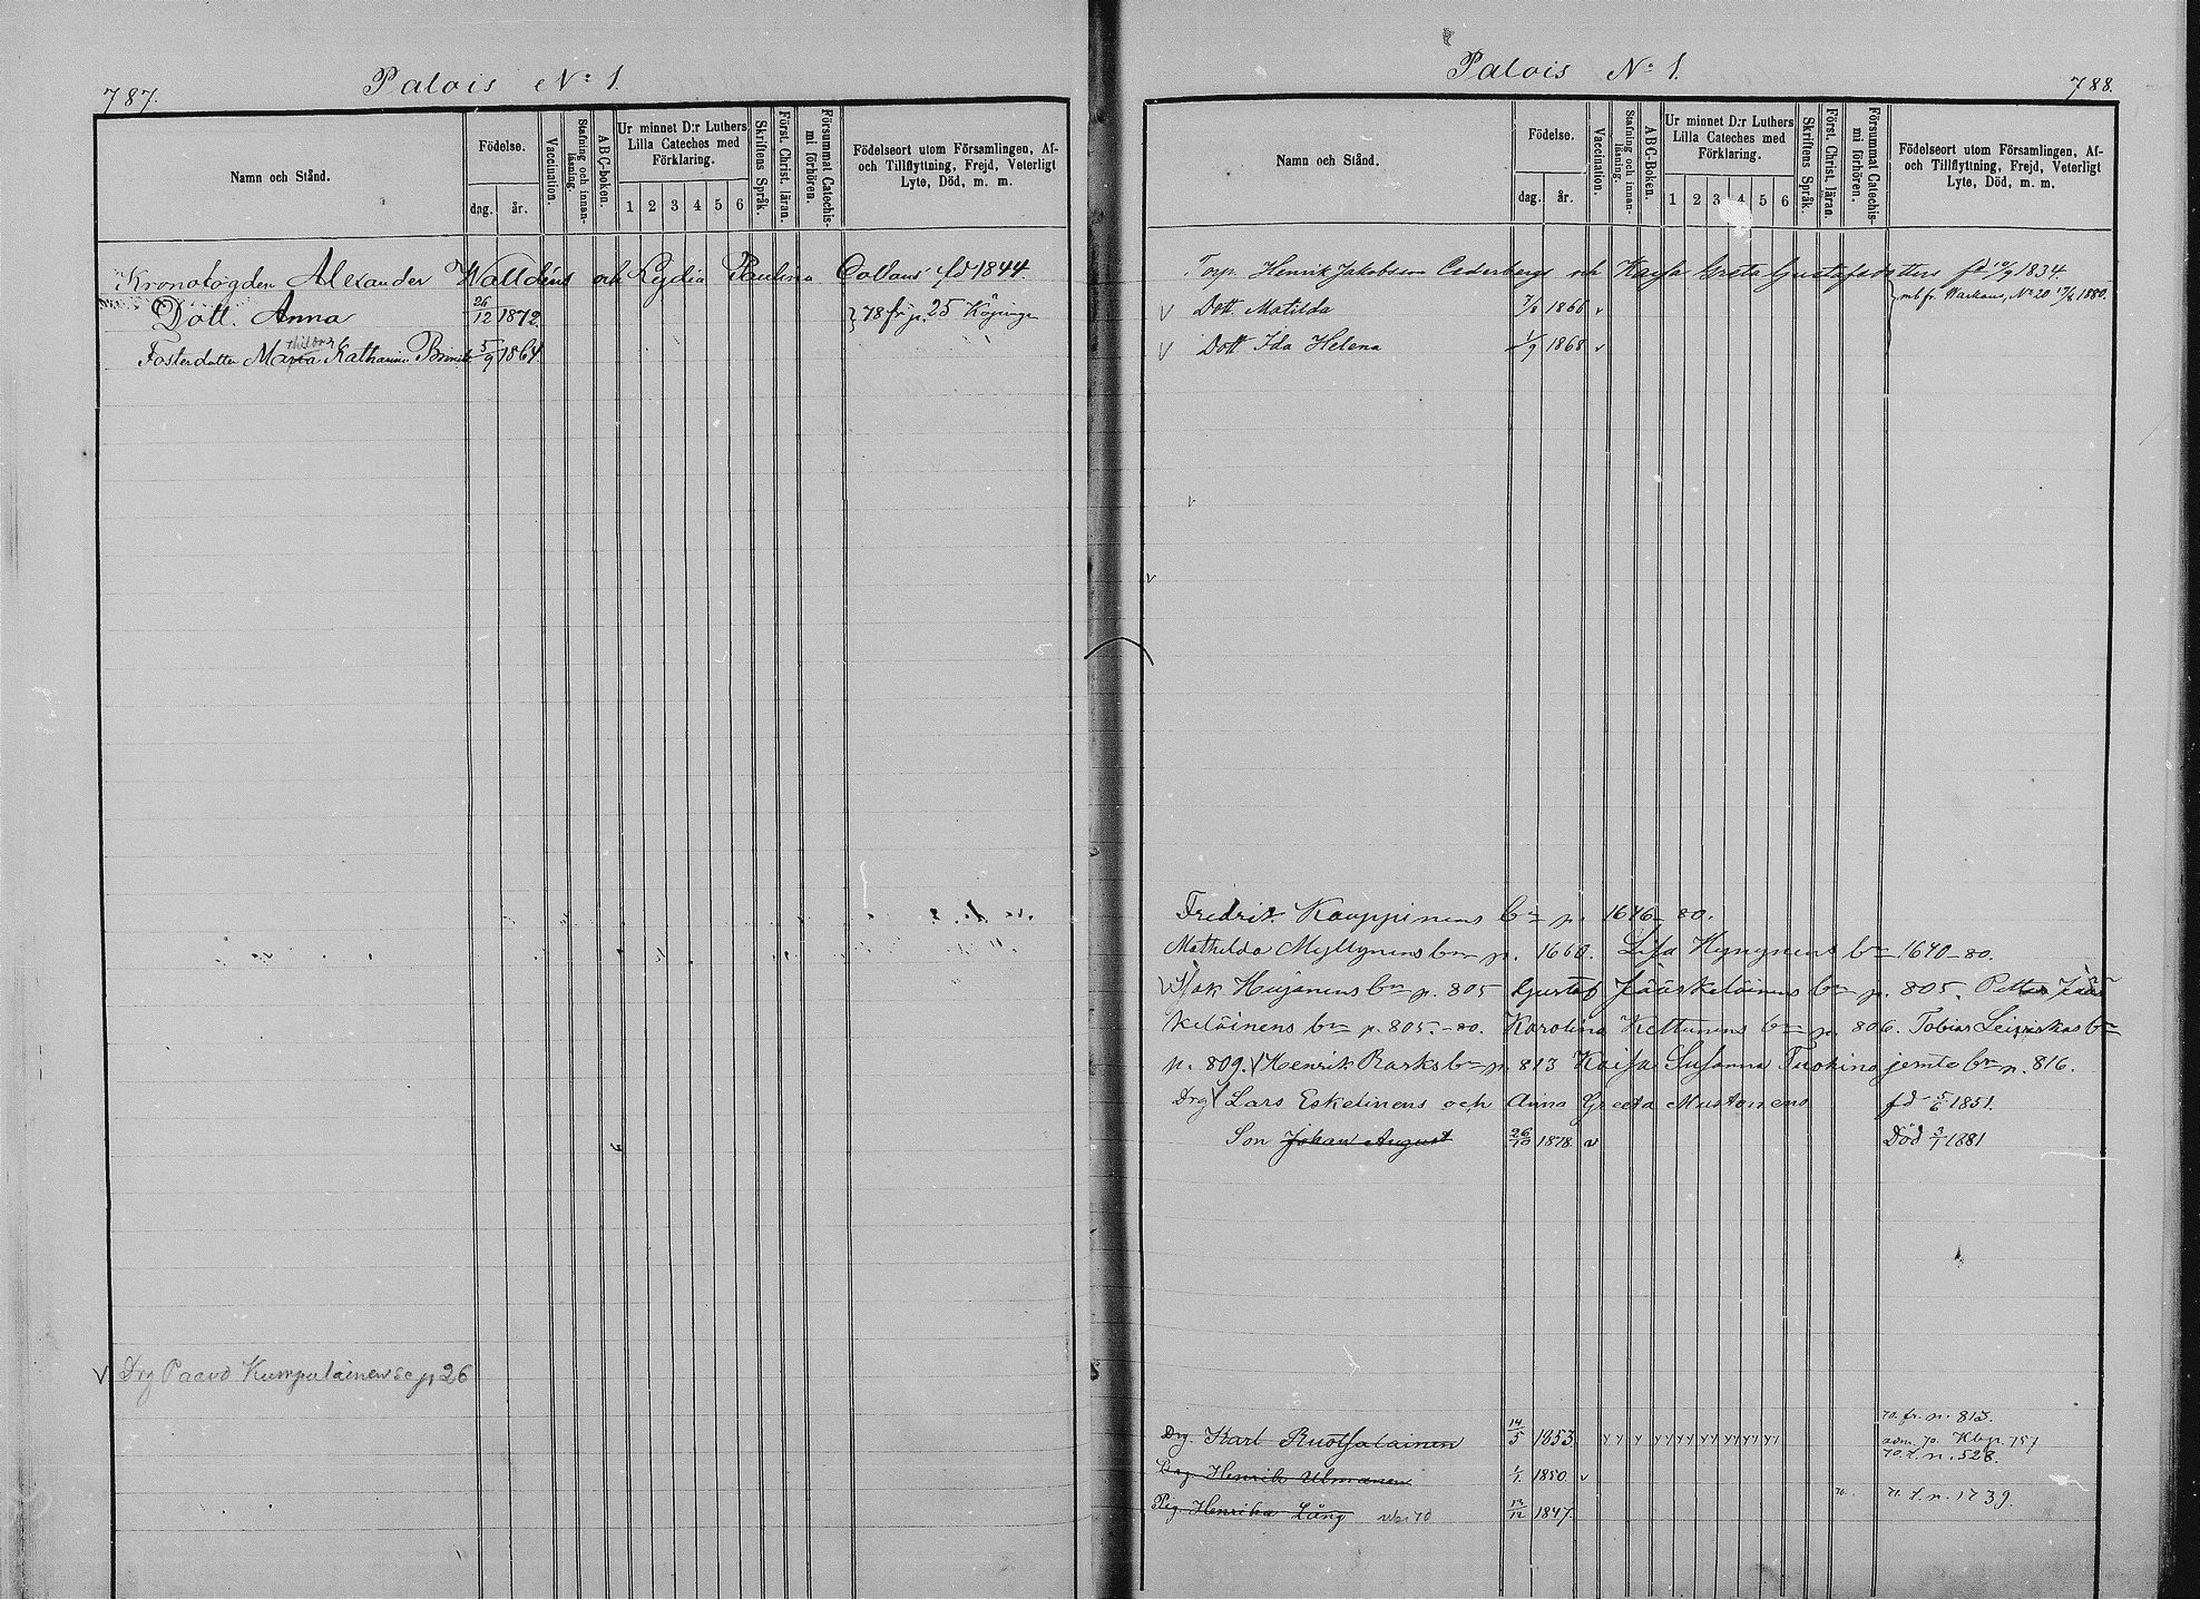 787.
Palois No: 1.
Namn och Stånd.
Födelse.
dag.
år.
Vaccination.
Stafning och innan-
läsning.
ABC-boken.
Ur minnet D:r Luthers
Lilla Cateches med
Förklaring.
1 2 3 4 5 6
Skriftens Språk.
Först. Christ. läran.
Försummat Catechis-
mi förhören.
Födelseort utom Församlingen, Af-
och Tillflyttning, Frejd, Veterligt
Lyte, Död, m. m.
Alexander Walldéns och Lydia Paulina Collans fd 1844.
Dott. Anna 26/12 1872. 78 fr p. 25
Fosterdotter Maria Katharina 5/9 1864
V Drg Paavo Kumpulainen se p 26
Palois No: 1.
788.
Namn och Stånd.
Födelse.
dag.
år.
Vaccination.
Stafning och innan-
läsning.
ABC-boken.
Ur minnet D:r Luthers
Lilla Cateches med
Förklaring.
1 2 3 4 5 6
Skriftens Språk.
Först. Christ. läran.
Försummat Catechis-
mi förhören.
Födelseort utom Församlingen, Af-
och Tillflyttning, Frejd, Veterligt
Lyte, Död, m. m.
Torp. Henrik Jakobsson Cederbergs och Kaysa Greta Gustafsdotters fd 10/9 1834
V Dott. Matilda 7/8 1866 v mb fr. Warkaus, No 20 1880.
V Dott Ida Helena 1/9 1868 v
Fredrik Kauppinens bm p. 1646-80.
Mathilda Myllynens bm p. 1660. Lisa Hynynens bm 1640-80.
V Isak Huijanens bm p. 805 Gustaf Jääskeläinens bm p. 805. Petter Jääs
keläinens bm p. 805.-80. Karolina Kettunens bm p. 806. Tobias Leipiskas bm
p. 809. V Henrik Barks bm p. 813 Kaisa Susanna jemte bm p. 816.
Drg V Lars Eskelinens och Anna Greeta Mustonens fd 5/6 1851.
Son Johan August 26/10 1878. v Död 3/1 1881
70. fr. p. 813.
Drg Karl Ruotsalainen 14/5 1853. adm. p. Kbp. 757
70. t. p. 528.
Drg. Henrik Ulmanen 1/1 1850. v
Pig. Henrika Lång 13/12 1847. 71. t. p. 1739.